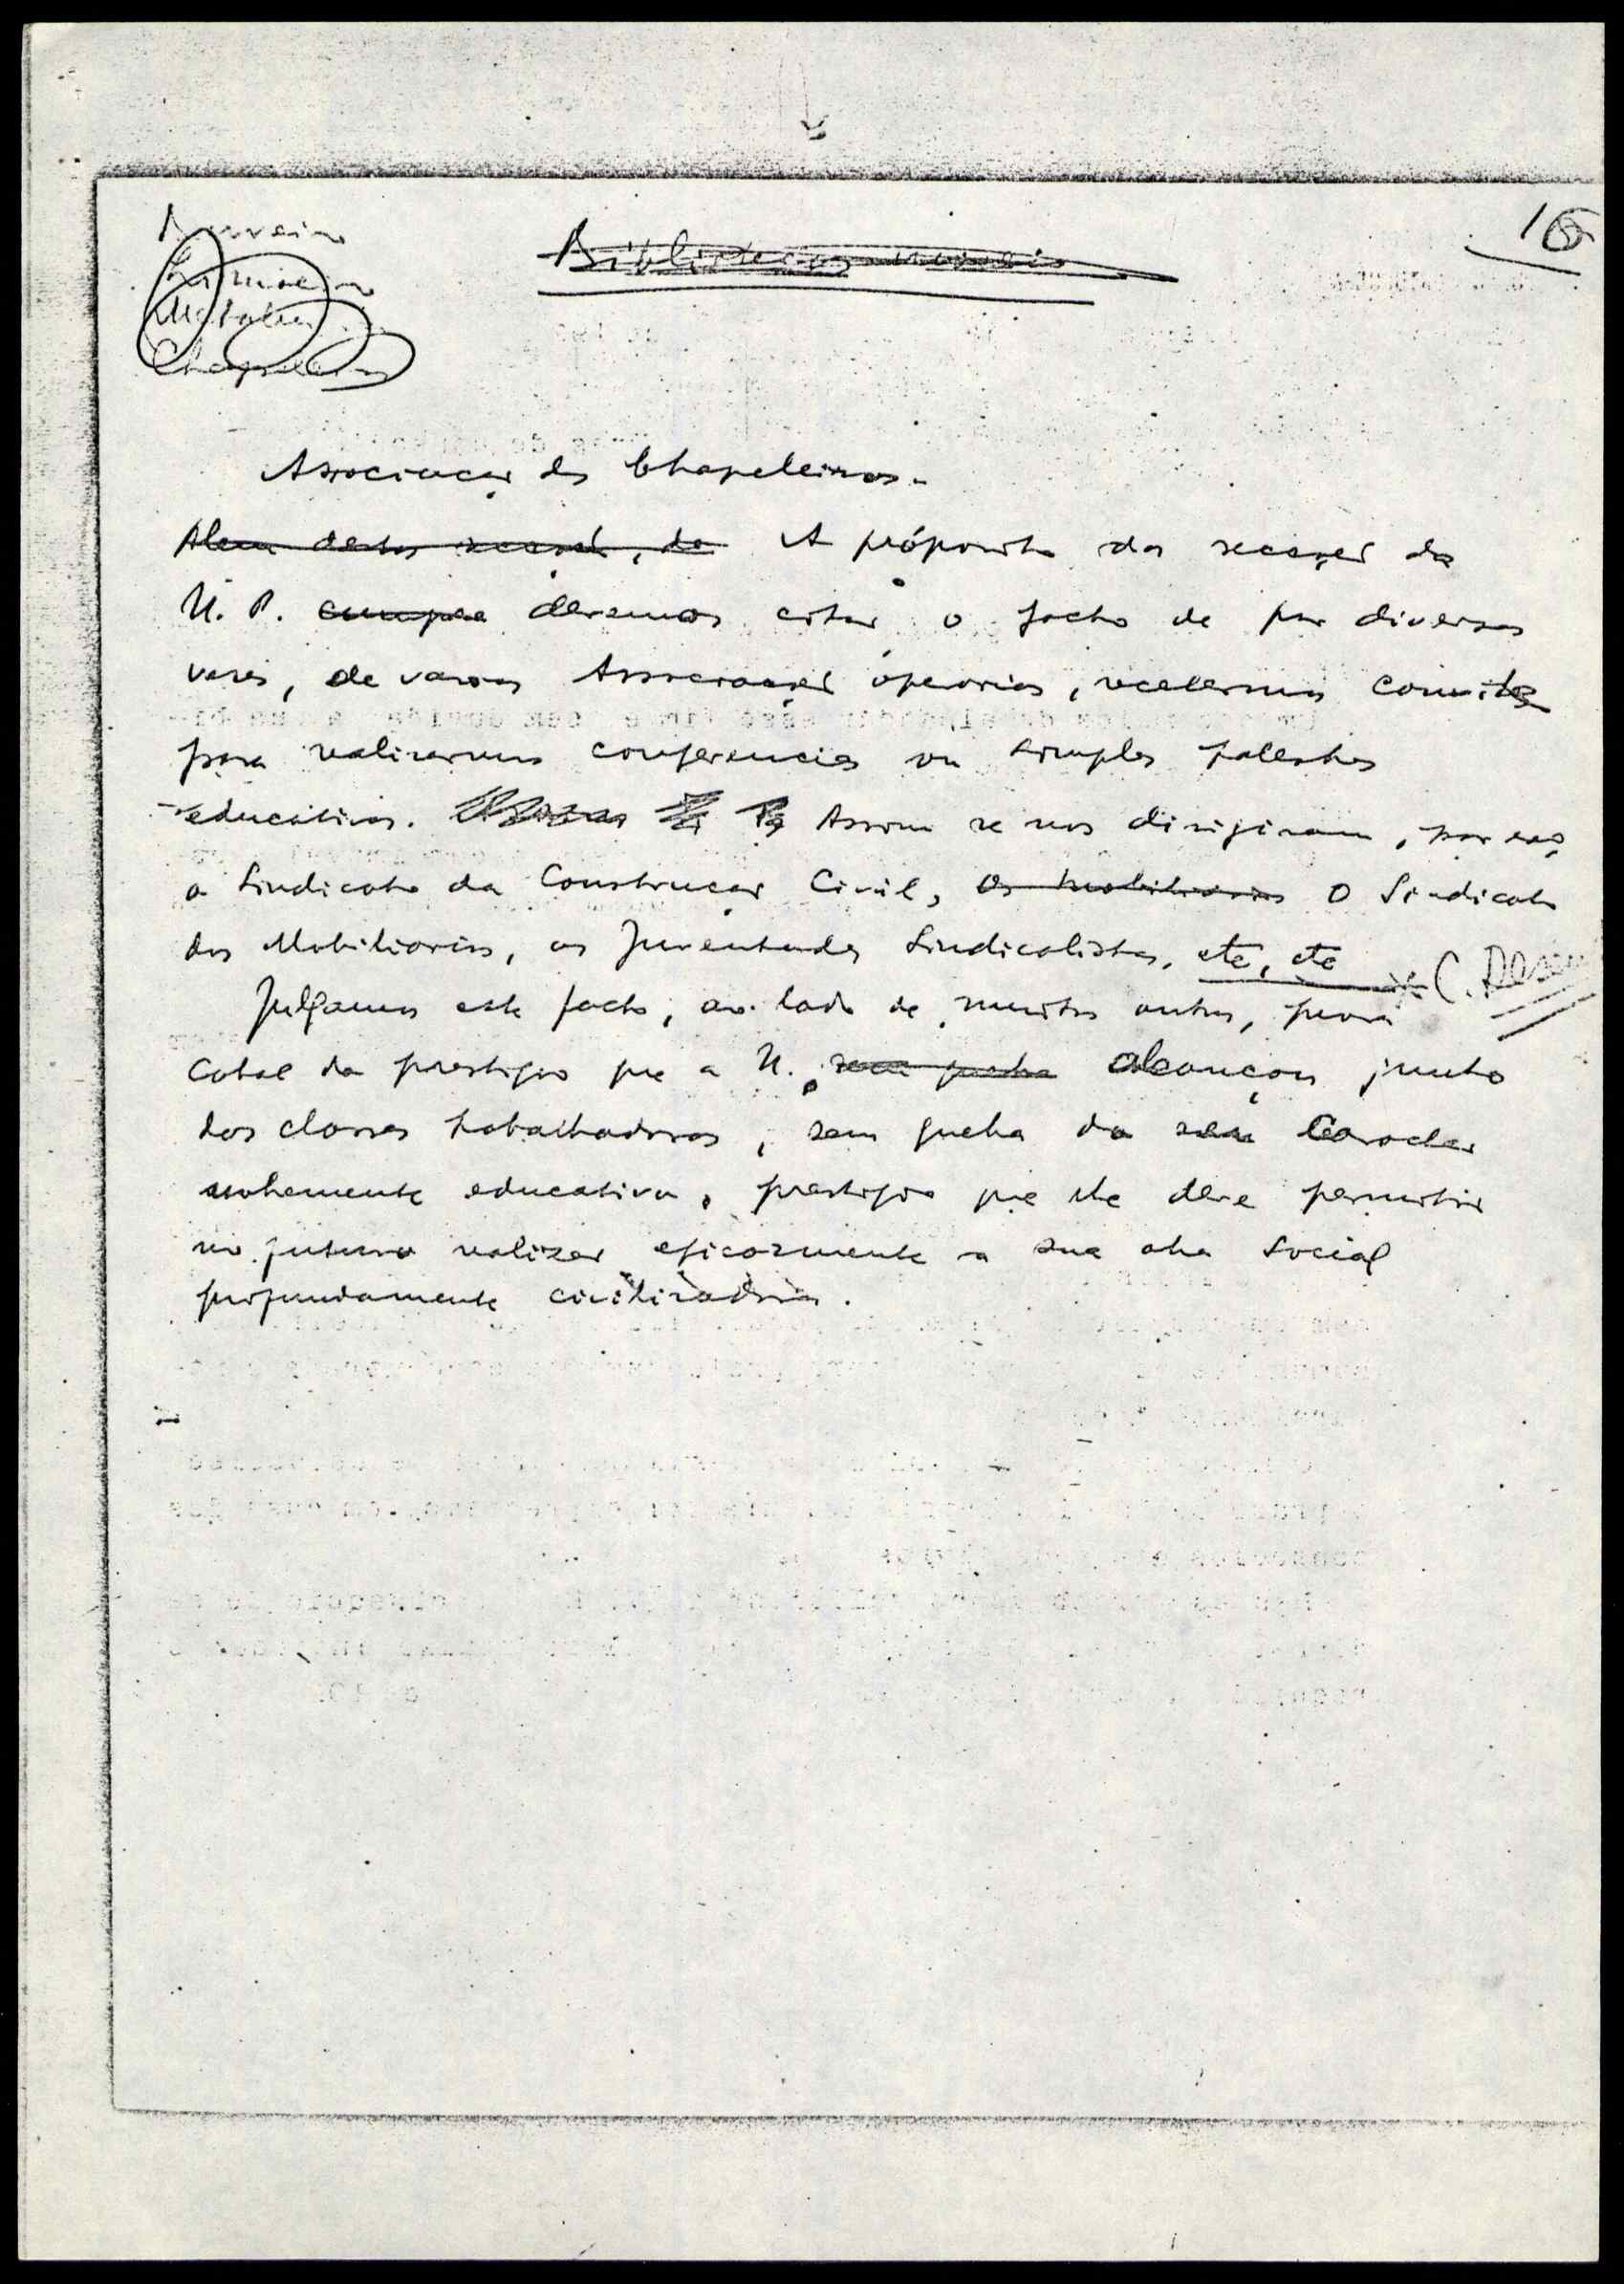 16
Bibliotecas moveis
Chapeleiros
Associação dos Chapeleiros.
Alem destas secções, de A próposito das secções da
U. P. cumpre devemos citar o facto de por diversas
vezes, de varias Associações operarias, recebermos convites
para realizarmos conferencias ou simples palestras
educativas. Assim se nos dirigiram, por ex.º,
o Sindicato da Construção Civil, os mobiliarios o Sindicato
dos Mobiliarios, as Juventudes Sindicalistas, etc, etc
Julgamos este facto, ao lado de muitos outros, prova
cabal do prestigio que a U. sem quebra alcançou junto
das classes trabalhadoras, sem quebra do seu caracter
educativo, prestigio que lhe deve permitir
no futuro realizar eficazmente a sua obra social
profundamente civilizadora.